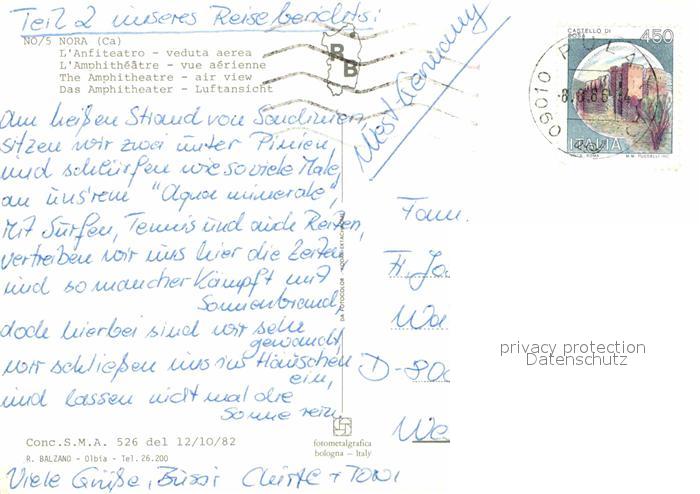 Teil 2 unseres Reiseberichts:
NO/5 NORA (Ca)
L'Anfiteatro - veduta aerea
L'Amphithéâtre - vue aérienne
The Amphitheatre - air view
Das Amphitheater - Luftansicht
RB
West-Germany
CASTELLO DI
450
ITALIA
09010 PULA
Am heißen Strand von Sardinien
sitzen wir zwei unter Pinien,
und schlürfen wie so viele Male,
an uns'rem "Aqua minerale",
Mit Surfen, Tennis und auch Reiten,
vertreiben wir uns hier die Zeiten
und so mancher kämpft mit
Sonnenbrand,
doch hierbei sind wir sehr
gewandt,
wir schließen uns ins Häuschen
ein,
und lassen nicht mal die
Sonne rein.
Fam.
D-80
privacy protection
Datenschutz
Conc.S.M.A. 526 del 12/10/82
R. BALZANO - Olbia - Tel.26.200
fotometalgrafica
bologna - Italy
Viele Grüße, Bussi Christl + Toni